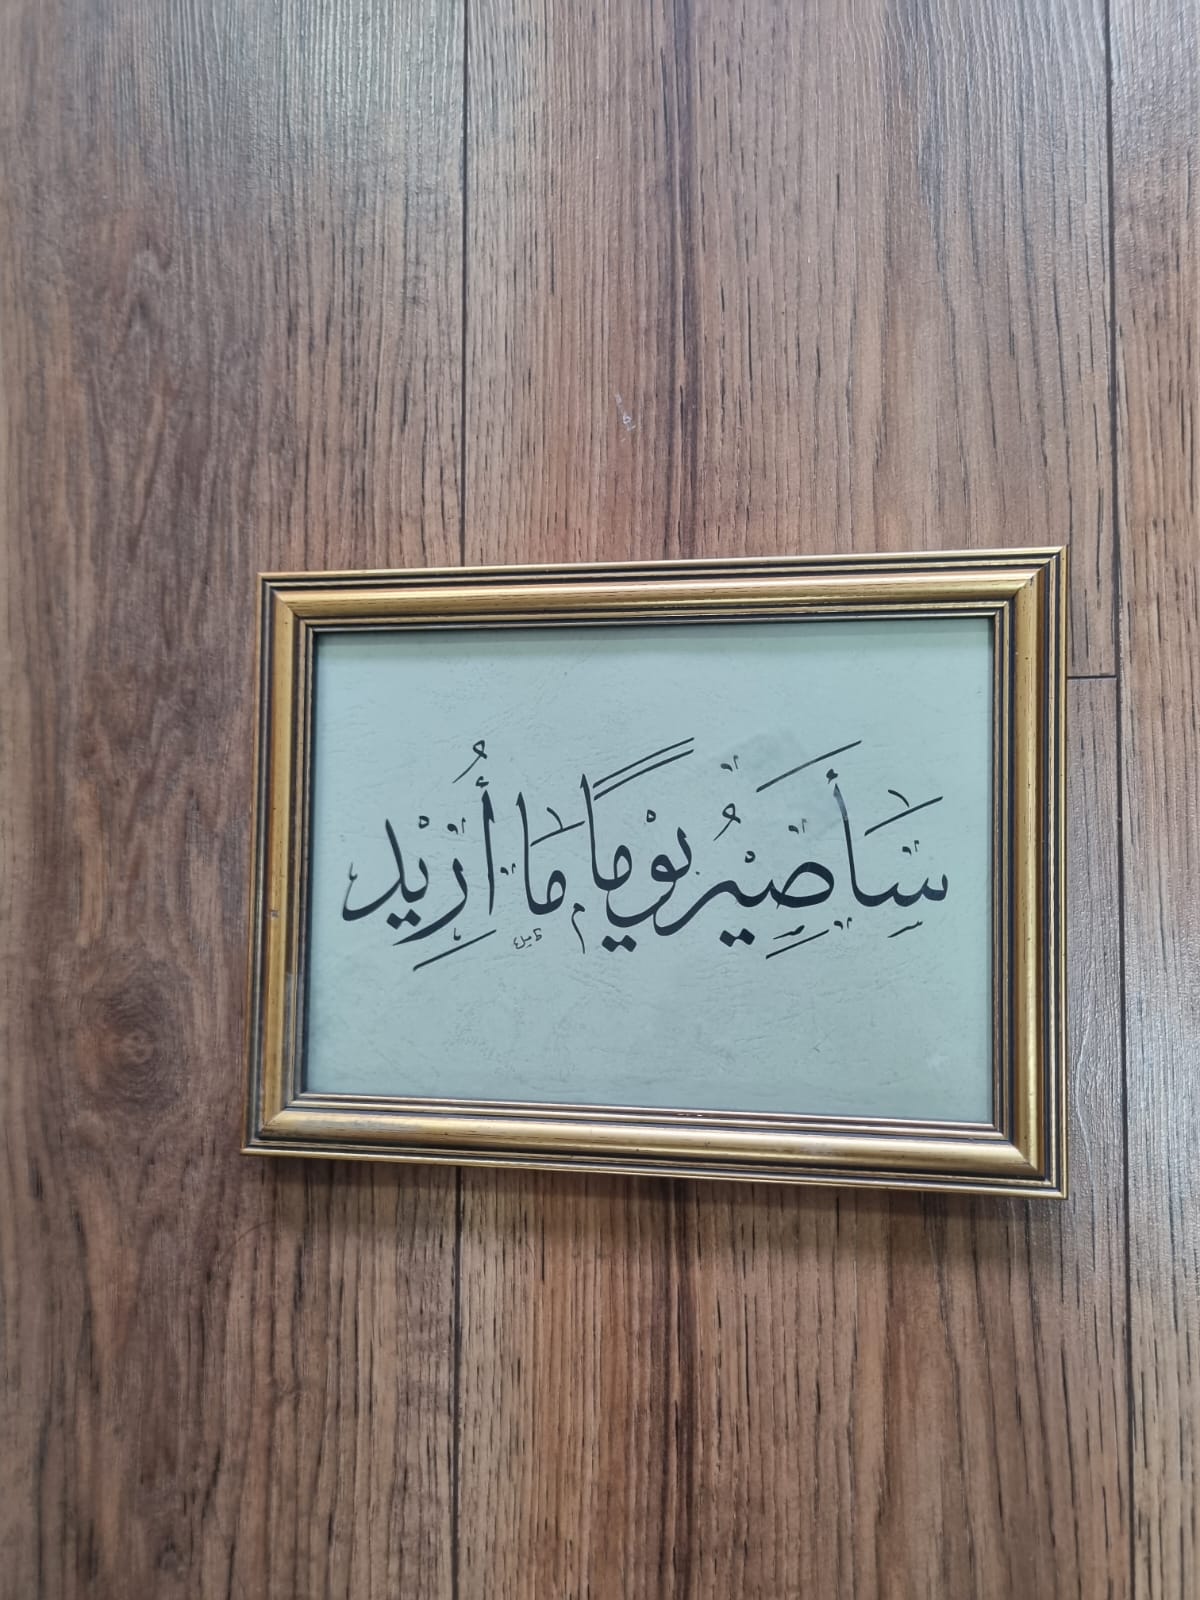 سَأَصِيْرُ يَوْمًا مَا أُرِيْد